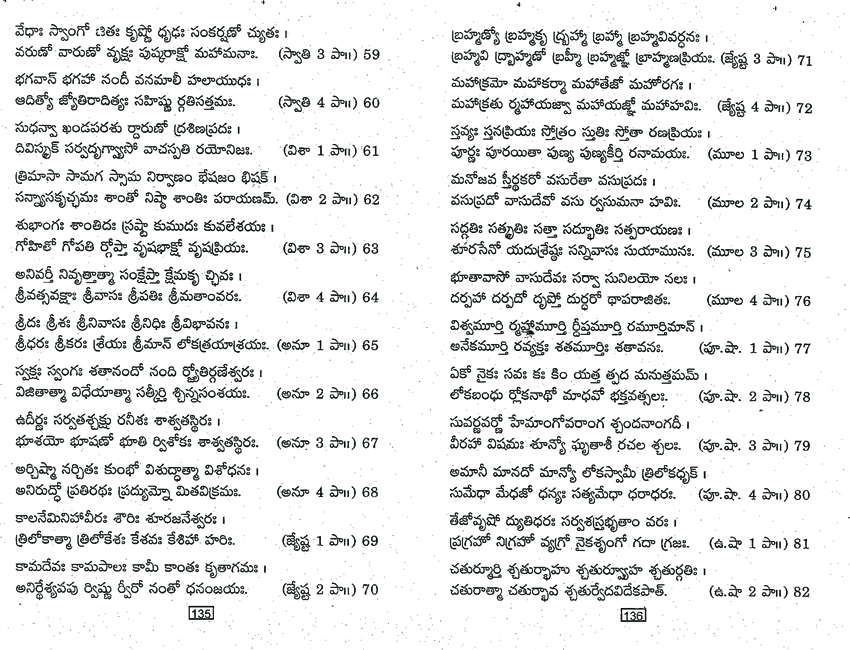 వేధాః స్వాంగో ఽజితః కృష్ణో ధృఢః సంకర్షణో చ్యుతః ।
వరుణో వారుణో వృక్షః పుష్కరాక్షో మహామనాః. (స్వాతి 3 పా॥) 59
భగవాన్ భగహా నందీ వనమాలీ హలాయుధః ।
ఆదిత్యో జ్యోతిరాదిత్యః సహిష్ణు ర్గతిసత్తమః. (స్వాతి 4 పా॥) 60
సుధన్వా ఖండపరశు ర్దారుణో ద్రశిణప్రదః ।
దివిస్పృక్ సర్వదృగ్వ్యాసో వాచస్పతి రయోనిజః. (విశా 1 పా॥) 61
త్రిమాసా సామగ స్సామ నిర్వాణం భేషజం భిషక్ ।
సన్న్యాసకృచ్ఛమః శాంతో నిష్ఠా శాంతిః పరాయణమ్. (విశా 2 పా॥) 62
శుభాంగః శాంతిదః స్రష్టా కుముదః కువలేశయః ।
గోహితో గోపతి ర్గోప్తా వృషభాక్షో వృషప్రియః. (విశా 3 పా॥) 63
అనివర్తీ నివృత్తాత్మా సంక్షేప్తా క్షేమకృ చ్ఛివః ।
శ్రీవత్సవక్షాః శ్రీవాసః శ్రీపతిః శ్రీమతాంవరః. (విశా 4 పా॥) 64
శ్రీదః శ్రీశః శ్రీనివాసః శ్రీనిధిః శ్రీవిభావనః ।
శ్రీధరః శ్రీకరః శ్రేయః శ్రీమాన్ లోకత్రయాశ్రయః. (అనూ 1 పా॥) 65
స్వక్షః స్వంగః శతానందో నంది ర్జ్యోతిర్గణేశ్వరః ।
విజితాత్మా విధేయాత్మా సత్కీర్తి శ్ఛిన్నసంశయః. (అనూ 2 పా॥) 66
ఉదీర్ణః సర్వతశ్చక్షు రనీశః శాశ్వతస్థిరః ।
భూశయో భూషణో భూతి ర్విశోకః శాశ్వతస్థిరః. (అనూ 3 పా॥) 67
అర్చిష్మా నర్చితః కుంభో విశుద్ధాత్మా విశోధనః ।
అనిరుద్ధో ప్రతిరథః ప్రద్యుమ్నో మితవిక్రమః. (అనూ 4 పా॥) 68
కాలనేమినిహావీరః శౌరిః శూరజనేశ్వరః ।
త్రిలోకాత్మా త్రిలోకేశః కేశవః కేశిహా హరిః. (జ్యేష్ట 1 పా॥) 69
కామదేవః కామపాలః కామీ కాంతః కృతాగమః ।
అనిర్దేశ్యవపు ర్విష్ణు ర్వీరో నంతో ధనంజయః. (జ్యేష్ట 2 పా॥) 70
135
బ్రహ్మణ్యో బ్రహ్మకృ ద్బ్రహ్మా బ్రహ్మా బ్రహ్మవివర్ధనః ।
బ్రహ్మవి ద్బ్రాహ్మణో బ్రహ్మీ బ్రహ్మజ్ఞో బ్రాహ్మణప్రియః. (జ్యేష్ట 3 పా॥) 71
మహాక్రమో మహాకర్మా మహాతేజో మహోరగః ।
మహాక్రతు ర్మహాయజ్వా మహాయజ్ఞో మహాహవిః. (జ్యేష్ట 4 పా॥) 72
స్తవ్యః స్తవప్రియః స్తోత్రం స్తుతిః స్తోతా రణప్రియః ।
పూర్ణః పూరయితా పుణ్య పుణ్యకీర్తి రనామయః. (మూల 1 పా॥) 73
మనోజవ స్తీర్థకరో వసురేతా వసుప్రదః ।
వసుప్రదో వాసుదేవో వసు ర్వసుమనా హవిః. (మూల 2 పా॥) 74
సద్గతిః సత్కృతిః సత్తా సద్భూతిః సత్పరాయణః ।
శూరసేనో యదుశ్రేష్ఠః సన్నివాసః సుయామునః. (మూల 3 పా॥) 75
భూతావాసో వాసుదేవః సర్వా సునిలయో నలః ।
దర్పహా దర్పదో దృప్తో దుర్ధరో థాపరాజితః. (మూల 4 పా॥) 76
విశ్వమూర్తి ర్మహామూర్తి ర్దీప్తమూర్తి రమూర్తిమాన్ ।
అనేకమూర్తి రవ్యక్తః శతమూర్తిః శతావనః. (పూ.షా. 1 పా॥) 77
ఏకో నైకః సవః కః కిం యత్త త్పద మనుత్తమమ్ ।
లోకబంధు ర్లోకనాథో మాధవో భక్తవత్సలః. (పూ.షా. 2 పా॥) 78
సువర్ణవర్ణో హేమాంగోవరాంగ శ్చందనాంగదీ ।
వీరహా విషమః శూన్యో ఘృతాశీ రచల శ్చలః. (పూ.షా. 3 పా॥) 79
అమానీ మానదో మాన్యో లోకస్వామీ త్రిలోకధృక్ ।
సుమేధా మేధజో ధన్యః సత్యమేధా ధరాధరః. (పూ.షా. 4 పా॥) 80
తేజోవృషో ద్యుతిధరః సర్వశస్త్రభృతాం వరః ।
ప్రగ్రహో నిగ్రహో వ్యగ్రో నైకశృంగో గదా గ్రజః. (ఉ.షా 1 పా॥) 81
చతుర్మూర్తి శ్చతుర్బాహు శ్చతుర్వ్యూహ శ్చతుర్గతిః ।
చతురాత్మా చతుర్భావ శ్చతుర్వేదవిదేకపాత్. (ఉ.షా 2 పా॥) 82
136